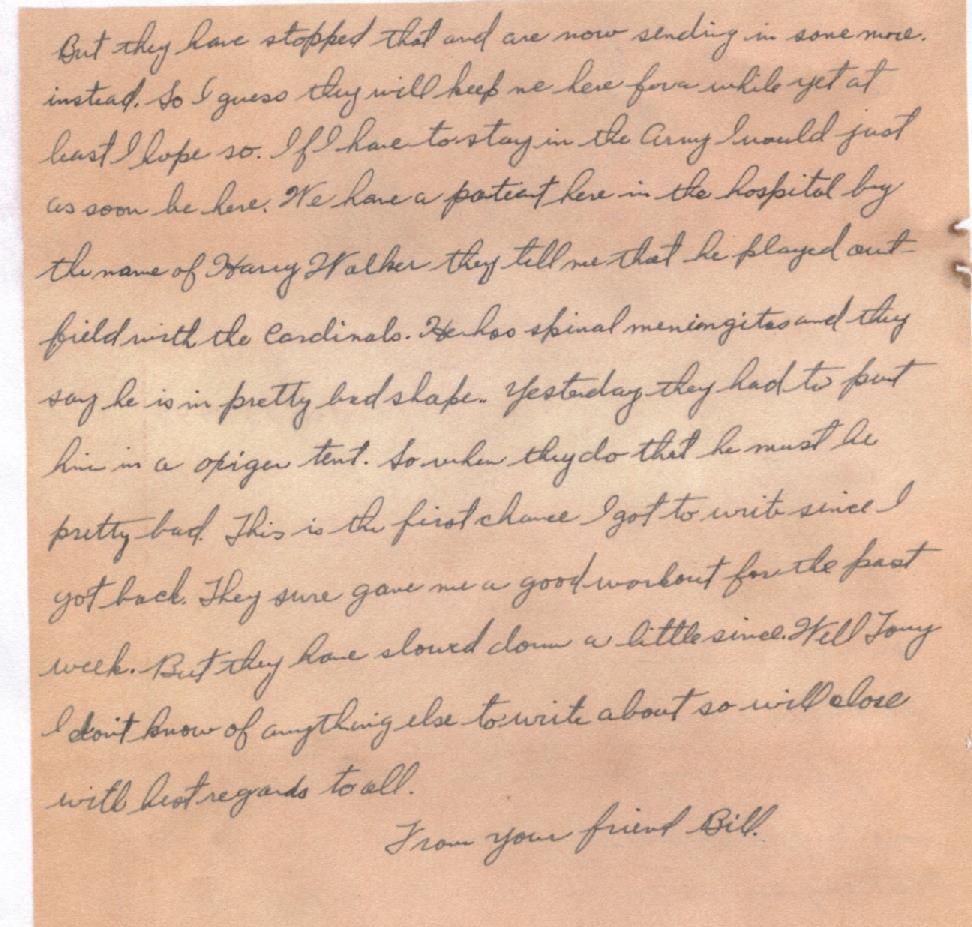 But they have stopped that and are now sending in some more.
instead. So I guess they will keep me here for a while yet at
least I hope so. If I have to stay in the Army I would just
as soon be here. We have a patient here in the hospital by
the name of Harry Walker they tell me that he played out-
field with the Cardinals. He has spinal meningitis and they
say he is in pretty bad shape. Yesterday they had to put
him in a oxigen tent. So when they do that he must be
pretty bad. This is the first chance I got to write since I
got back. They sure gave me a good workout for the past
week. But they have slowed down a little since. Well Tony
I don't know of anything else to write about so will close
with best regards to all.
From your friend Bill.